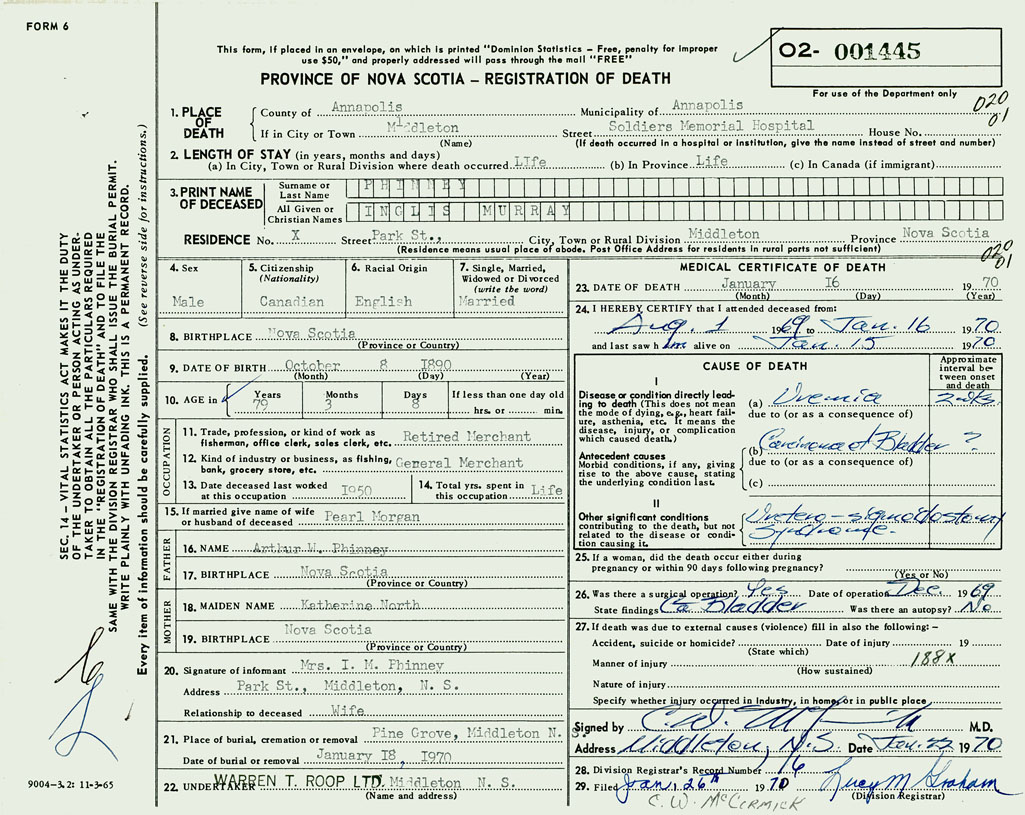 FORM 6
This form, if placed in an envelope, on which is printed "Dominion Statistics – Free, penalty for improper
use $50," and properly addressed will pass through the mail "FREE"
PROVINCE OF NOVA SCOTIA – REGISTRATION OF DEATH
O2- 001445
For use of the Department only
020
01
1. PLACE OF DEATH
County of Annapolis Municipality of Annapolis
If in City or Town Middleton Street Soldiers Memorial Hospital House No.
(Name) (If death occurred in a hospital or institution, give the name instead of street and number)
2. LENGTH OF STAY (in years, months and days)
(a) In City, Town or Rural Division where death occurred LIfe (b) In Province Life (c) In Canada (if immigrant)
3. PRINT NAME OF DECEASED
Surname or Last Name PHINNEY
All Given or Christian Names INGLIS MURRAY
RESIDENCE No. X Street Park St., City, Town or Rural Division Middleton Province Nova Scotia
(Residence means usual place of abode. Post Office Address for residents in rural parts not sufficient)
020
01
4. Sex
Male
5. Citizenship
(Nationality)
Canadian
6. Racial Origin
English
7. Single, Married,
Widowed or Divorced
(write the word)
Married
8. BIRTHPLACE Nova Scotia
(Province or Country)
9. DATE OF BIRTH October 8 1890
(Month) (Day) (Year)
10. AGE in Years Months Days If less than one day old
79 3 8 hrs. or min.
OCCUPATION
11. Trade, profession, or kind of work as
fisherman, office clerk, sales clerk, etc. Retired Merchant
12. Kind of industry or business, as fishing,
bank, grocery store, etc. General Merchant
13. Date deceased last worked
at this occupation 1950
14. Total yrs. spent in
this occupation Life
15. If married give name of wife
or husband of deceased Pearl Morgan
FATHER
16. NAME Arthur W. Phinney
17. BIRTHPLACE Nova Scotia
(Province or Country)
MOTHER
18. MAIDEN NAME Katherine North
19. BIRTHPLACE Nova Scotia
(Province or Country)
20. Signature of informant Mrs. I. M. Phinney
Address Park St., Middleton, N. S.
Relationship to deceased Wife
21. Place of burial, cremation or removal Pine Grove, Middleton N. S.
Date of burial or removal January 18, 1970
22. UNDERTAKER WARREN T. ROOP LTD. Middleton N. S.
(Name and address)
MEDICAL CERTIFICATE OF DEATH
23. DATE OF DEATH January 16 19 70
(Month) (Day) (Year)
24. I HEREBY CERTIFY that I attended deceased from:
Aug. 1 1969 to Jan. 16 1970
and last saw him alive on Jan. 15 1970
CAUSE OF DEATH
Approximate
interval be-
tween onset
and death
I
Disease or condition directly lead-
ing to death (This does not mean
the mode of dying, e.g., heart fail-
ure, asthenia, etc. It means the
disease, injury, or complication
which caused death.)
(a) Uremia 2 wks.
due to (or as a consequence of)
Antecedent causes
Morbid conditions, if any, giving
rise to the above cause, stating
the underlying condition last.
(b) Carcinoma of Bladder ?
due to (or as a consequence of)
(c)
II
Other significant conditions
contributing to the death, but not
related to the disease or condi-
tion causing it.
Uretero-sigmoidostomy
Syndrome.
25. If a woman, did the death occur either during
pregnancy or within 90 days following pregnancy?
(Yes or No)
26. Was there a surgical operation? Yes Date of operation Dec. 1969
State findings Ca Bladder Was there an autopsy? No
27. If death was due to external causes (violence) fill in also the following: –
Accident, suicide or homicide? Date of injury 19
(State which)
Manner of injury 188X
(How sustained)
Nature of injury
Specify whether injury occurred in Industry, in home, or in public place
Signed by M.D.
Address Middleton, N.S. Date Jan. 22 1970
28. Division Registrar's Record Number 16
29. Filed Jan. 26th 1970 Lucy M Graham
(Division Registrar)
C. W. McCORMICK
SEC. 14 – VITAL STATISTICS ACT MAKES IT THE DUTY
OF THE UNDERTAKER OR PERSON ACTING AS UNDER-
TAKER TO OBTAIN ALL THE PARTICULARS REQUIRED
IN THE "REGISTRATION OF DEATH" AND TO FILE THE
SAME WITH THE DIVISION REGISTRAR WHO SHALL ISSUE THE BURIAL PERMIT.
WRITE PLAINLY WITH UNFADING INK. THIS IS A PERMANENT RECORD.
Every item of information should be carefully supplied. (See reverse side for instructions.)
9004-3.2: 11-3-65